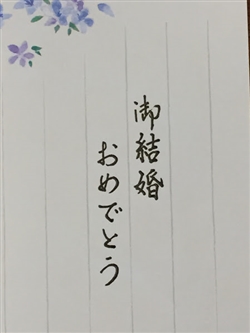 御結婚
おめでとう